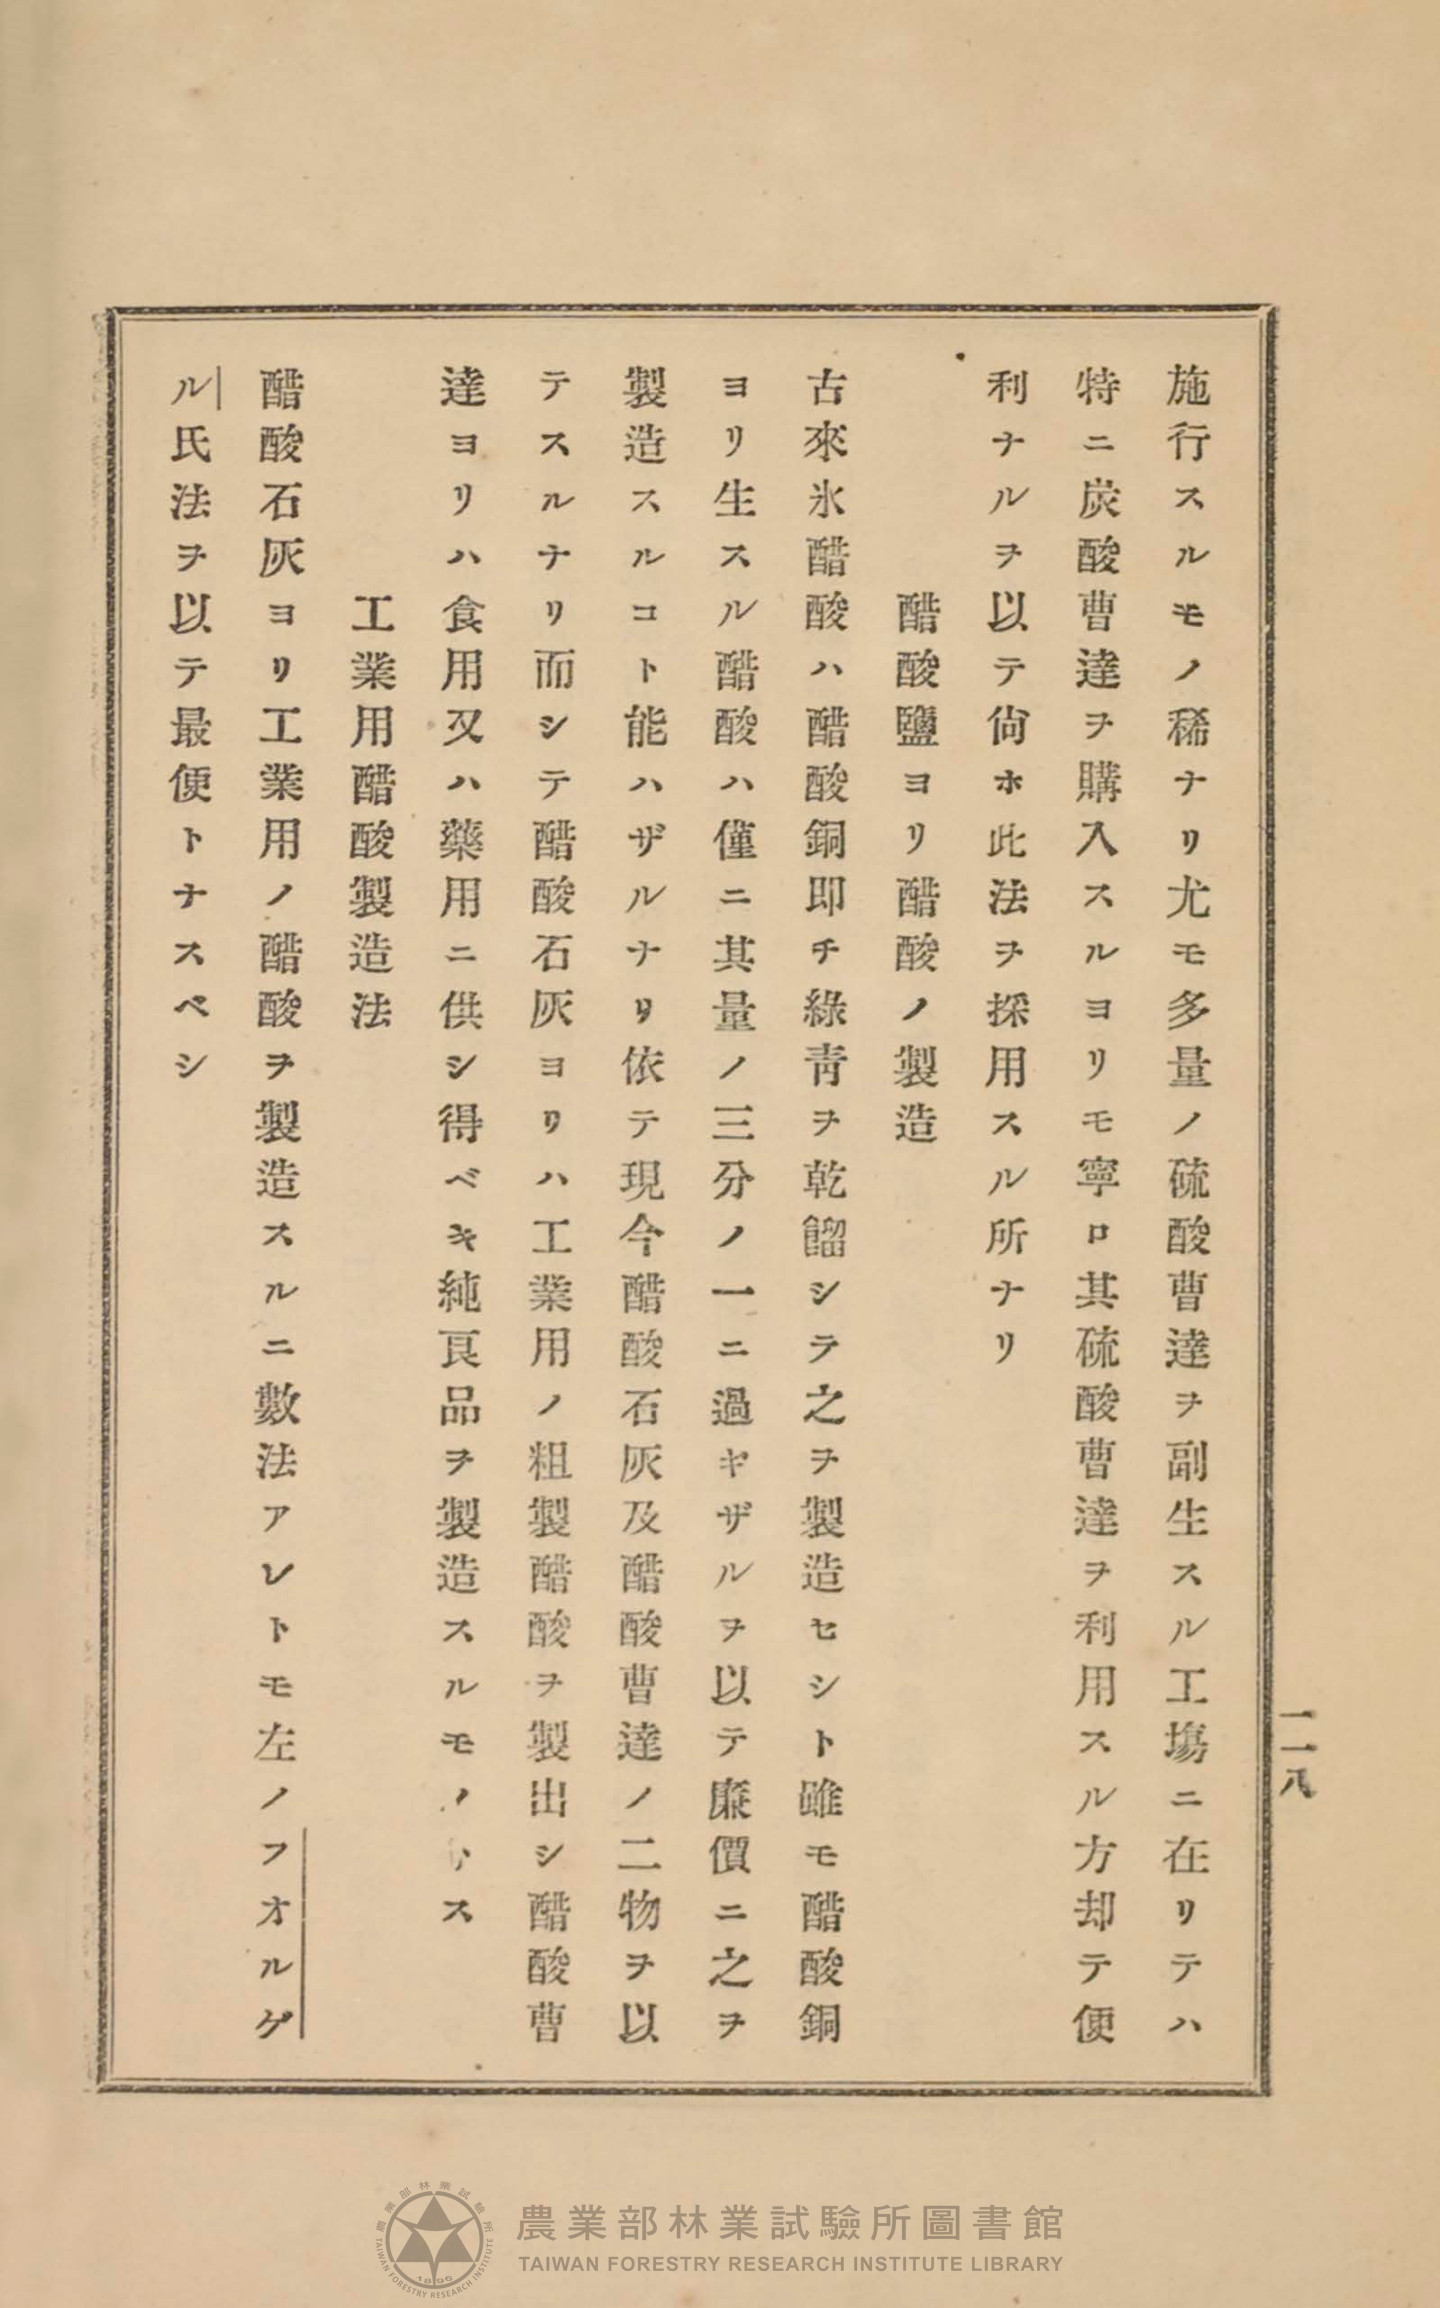 施行スルモノ稀ナリ尤モ多量ノ硫酸曹達ヲ副生スル工塲ニ在リテハ
特ニ炭酸曹達ヲ購入スルヨリモ寧ロ其硫酸曹達ヲ利用スル方却テ便
利ナルヲ以テ尙ホ此法ヲ採用スル所ナリ
醋酸鹽ヨリ醋酸ノ製造
古來氷醋酸ハ醋酸銅即チ綠靑ヲ乾餾シテ之ヲ製造セシト雖モ醋酸銅
ヨリ生スル醋酸ハ僅ニ其量ノ三分ノ一ニ過ギザルヲ以テ廉價ニ之ヲ
製造スルコト能ハザルナリ依テ現今醋酸石灰及醋酸曹達ノ二物ヲ以
テスルナリ而シテ醋酸石灰ヨリハ工業用ノ粗製醋酸ヲ製出シ醋酸曹
達ヨリハ食用又ハ藥用ニ供シ得ベキ純良品ヲ製造スルモノトス
工業用醋酸製造法
醋酸石灰ヨリ工業用ノ醋酸ヲ製造スルニ數法アレトモ左ノフオルゲ
ル氏法ヲ以テ最便トナスベシ
二一八
農業部林業試驗所圖書館
TAIWAN FORESTRY RESEARCH INSTITUTE LIBRARY
農業部林業試驗所
TAIWAN FORESTRY RESEARCH INSTITUTE
1896